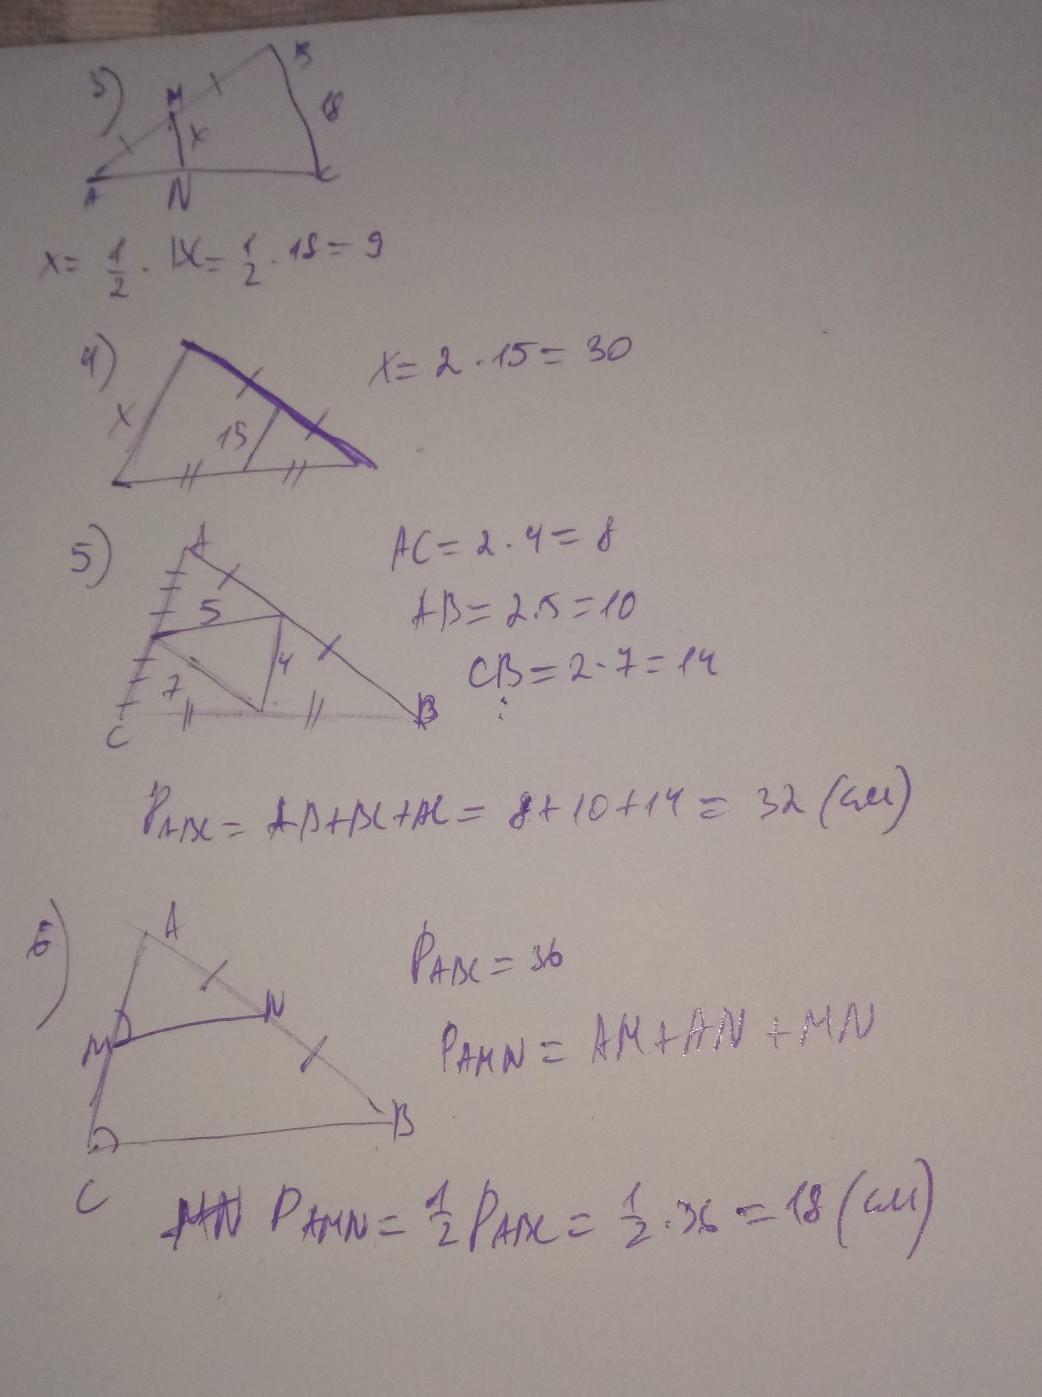 3)
M
B
18
x
A
N
C
x = 1/2 · BC = 1/2 · 18 = 9
4)
x = 2 · 15 = 30
x
15
5)
A
AC = 2 · 4 = 8
5
AB = 2 · 5 = 10
4
CB = 2 · 7 = 14
7
B
C
P ABC = AB + BC + AC = 8 + 10 + 14 = 32 (см)
6)
A
P ABC = 36
N
M
P AMN = AM + AN + MN
B
C
P AMN = 1/2 P ABC = 1/2 · 36 = 18 (см)